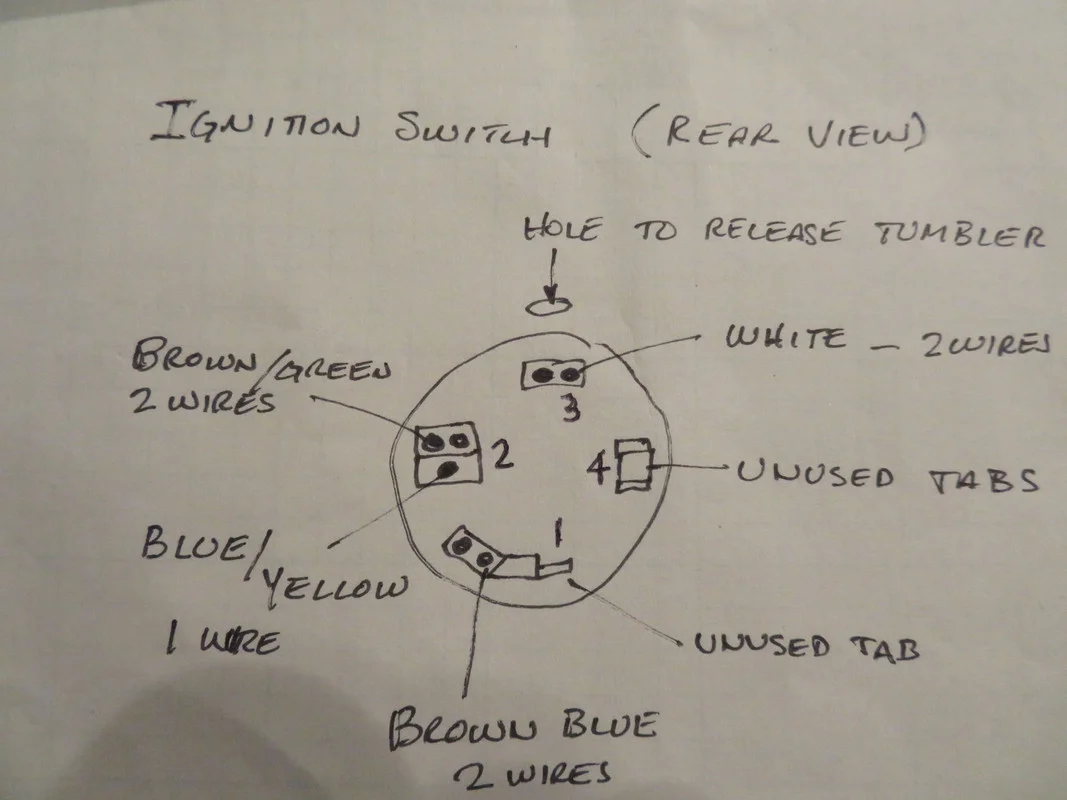 IGNITION SWITCH (REAR VIEW)
HOLE TO RELEASE TUMBLER
WHITE – 2 WIRES
BROWN/GREEN
2 WIRES
3
2
4
UNUSED TABS
BLUE/
YELLOW
1 WIRE
1
UNUSED TAB
BROWN BLUE
2 WIRES